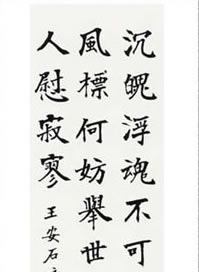 沉魄浮魂不可
風標何妨舉世
人慰寂寥 王安石